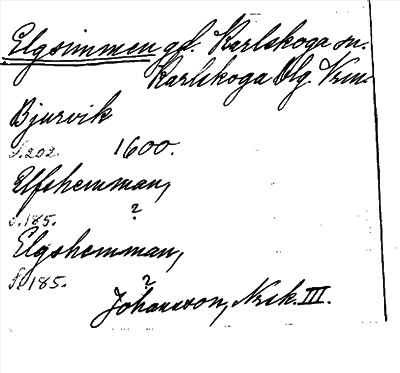 Elgsimmen gd. Karlskoga sn.
Karlskoga Blg. Vrm.
Bjurvik
S.202. 1600.
Elfshemman,
s.185. ?
Elgshemman,
S.185. ?
Johansson, Nrik. III.